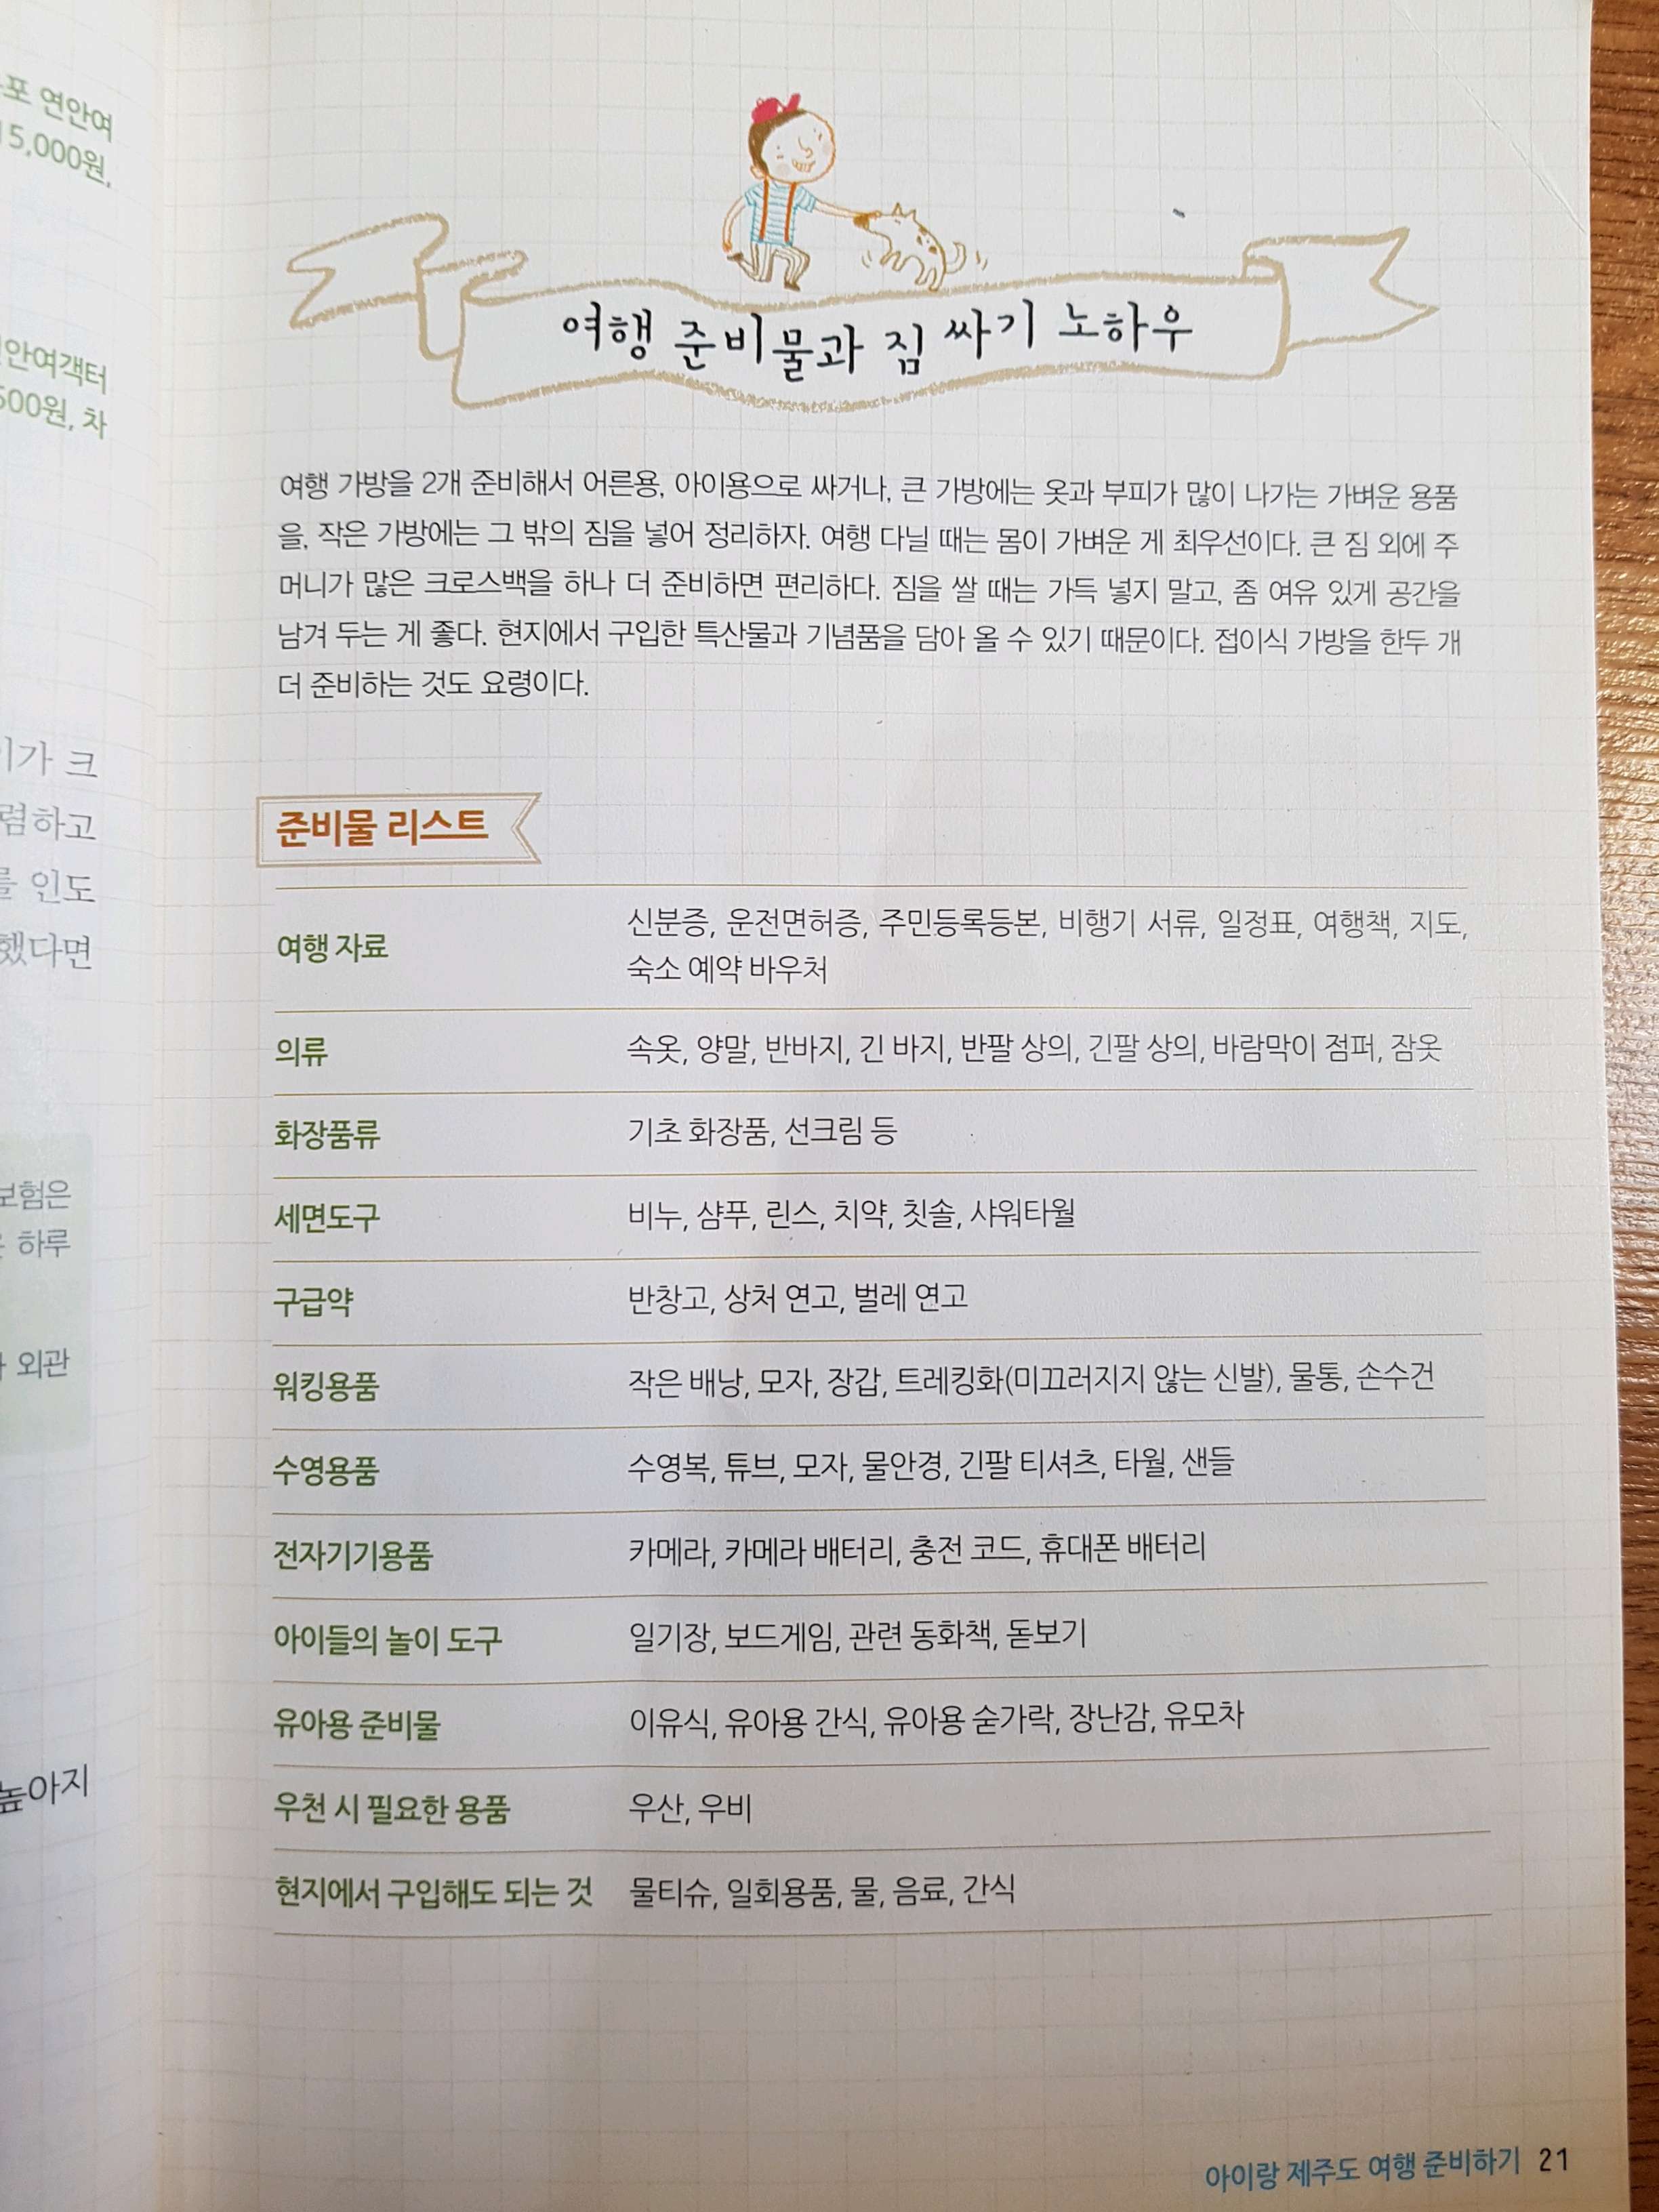 포 연안여
15,000원,
안여객터
500원, 차
가 크
렴하고
를 인도
했다면
보험은
하루
외관
높아지
여행 준비물과 짐 싸기 노하우
여행 가방을 2개 준비해서 어른용, 아이용으로 싸거나, 큰 가방에는 옷과 부피가 많이 나가는 가벼운 용품
을, 작은 가방에는 그 밖의 짐을 넣어 정리하자. 여행 다닐 때는 몸이 가벼운 게 최우선이다. 큰 짐 외에 주
머니가 많은 크로스백을 하나 더 준비하면 편리하다. 짐을 쌀 때는 가득 넣지 말고, 좀 여유 있게 공간을
남겨 두는 게 좋다. 현지에서 구입한 특산물과 기념품을 담아 올 수 있기 때문이다. 접이식 가방을 한두 개
더 준비하는 것도 요령이다.
준비물 리스트
여행 자료 신분증, 운전면허증, 주민등록등본, 비행기 서류, 일정표, 여행책, 지도,
숙소 예약 바우처
의류 속옷, 양말, 반바지, 긴 바지, 반팔 상의, 긴팔 상의, 바람막이 점퍼, 잠옷
화장품류 기초 화장품, 선크림 등
세면도구 비누, 샴푸, 린스, 치약, 칫솔, 샤워타월
구급약 반창고, 상처 연고, 벌레 연고
워킹용품 작은 배낭, 모자, 장갑, 트레킹화(미끄러지지 않는 신발), 물통, 손수건
수영용품 수영복, 튜브, 모자, 물안경, 긴팔 티셔츠, 타월, 샌들
전자기기용품 카메라, 카메라 배터리, 충전 코드, 휴대폰 배터리
아이들의 놀이 도구 일기장, 보드게임, 관련 동화책, 돋보기
유아용 준비물 이유식, 유아용 간식, 유아용 숟가락, 장난감, 유모차
우천 시 필요한 용품 우산, 우비
현지에서 구입해도 되는 것 물티슈, 일회용품, 물, 음료, 간식
아이랑 제주도 여행 준비하기 21